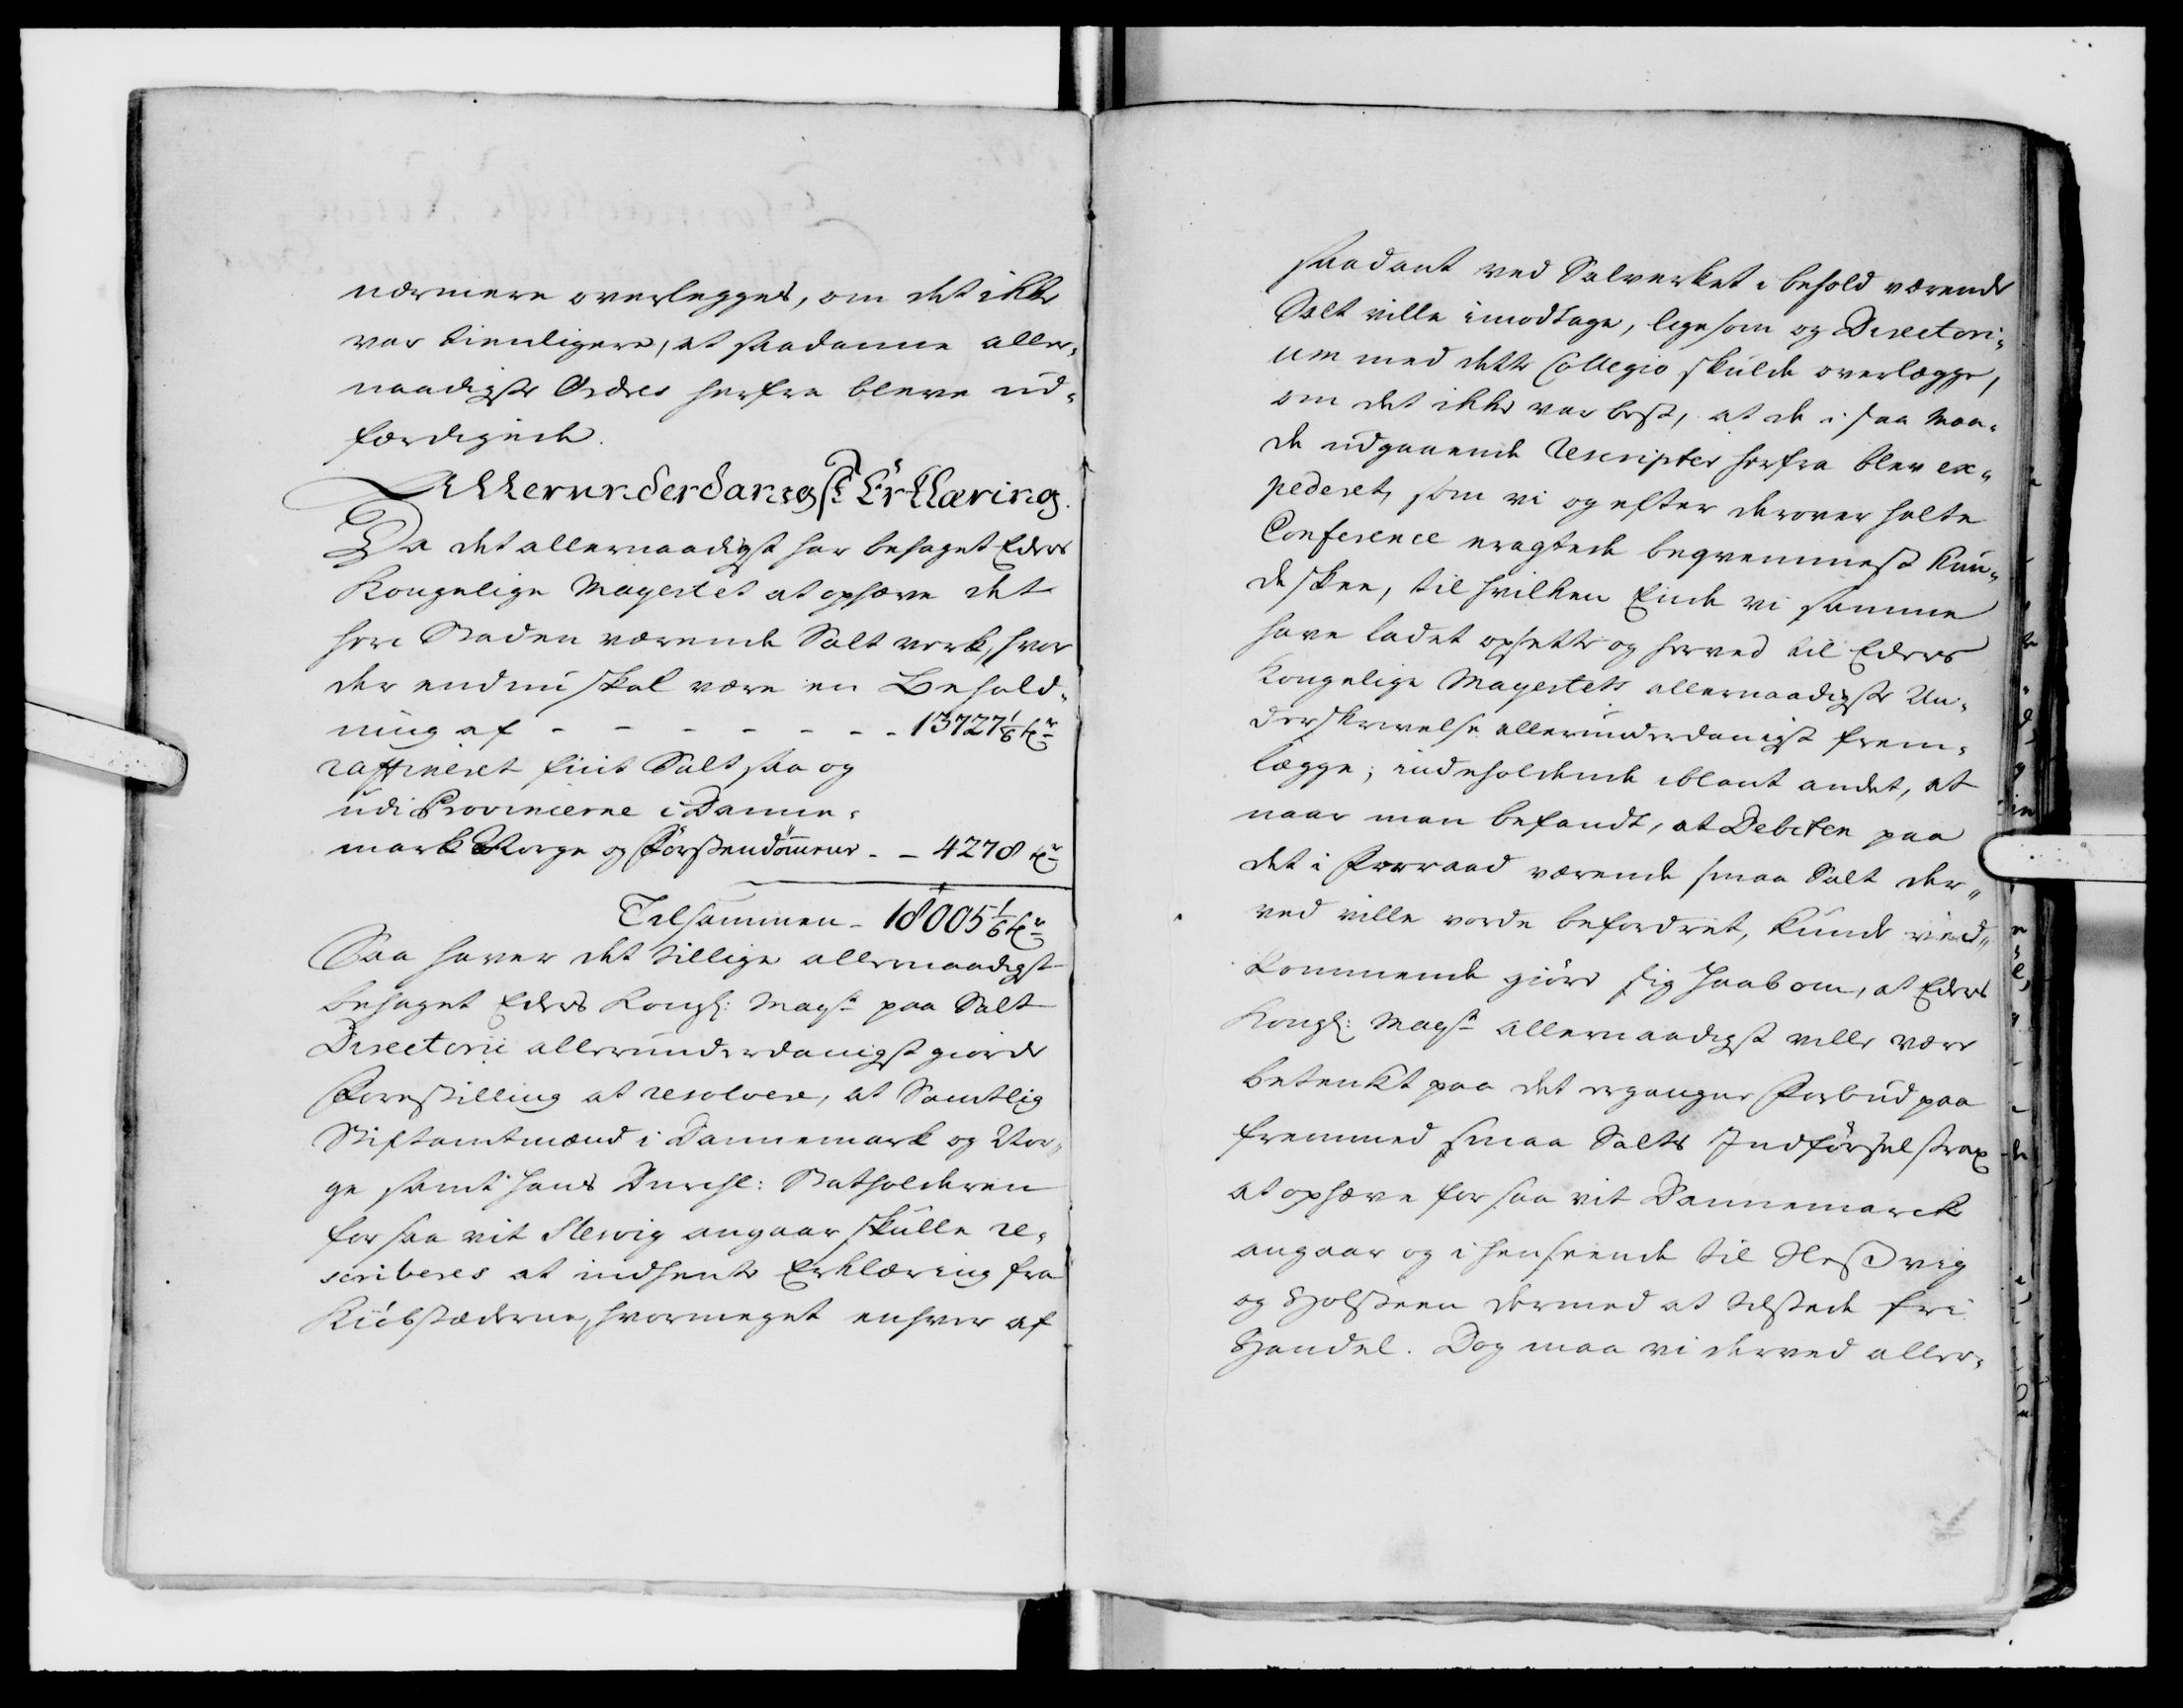 nærmere overlegges, om det ikke
var tienligere, at saadanne aller-
naadigste Ordres herfra bleve ud-
færdigede.
Allerunderdanigst Erklæring.
Da det allernaadigst har behaget Eders
Kongelige Mayestet at ophæve det
her i Staden værende Salt værk, hvor
der endnu skal være en Behold-
ning af - - - - - - - 13727 1/6 Tr
raffineret fiint Salt saa og
udi Provincerne i Danne-
mark Norge og Førstendømmene - - 4278 Tr
Tilsammen - 18005 1/6 Tr
Saa haver det tillige allernaadigst
behaget Eders Kongl: Mayst paa Salt
Directorii allerunderdanigst giorde
Forestilling at resolvere, at Samtlig
Stiftamtmænd i Dannemark og Nor-
ge samt Hans Durchl: Statholderen
for saa vit Slesvig angaar skulle re-
scriberes at indhente Erklæring fra
Kiöbstæderne, hvormeget enhver af
saadant ved Salverket i behold værende
Salt ville imodtage, ligesom og Directori-
um med dette Collegio skulde overlægge,
om det ikke var best, at de i saa Maa-
de udgaaende Rescripter herfra blev ex-
pederet, som vi og efter derover holte
Conference eragtede beqvemmest kun-
de skee, til hvilken Ende vi samme
have ladet opsette og herved til Eders
Kongelige Mayestets allernaadigste Un-
derskrivelse allerunderdanigst frem-
lægge; indeholdende iblant andet, at
naar man befandt, at Debiten paa
det i Forraad værende smaa Salt der-
ved ville vorde befordret, kunde ved-
kommende giöre sig Haab om, at Eders
Kongl: Mayst allernaadigst ville være
betenkt paa det ergangne Forbud paa
fremmed smaa Salts Indförsel strax
at ophæve for saa vit Dannemarck
angaar og i henseende til Slesvig
og Holsteen dermed at tilstede fri
Handel. Dog maa vi derved aller-